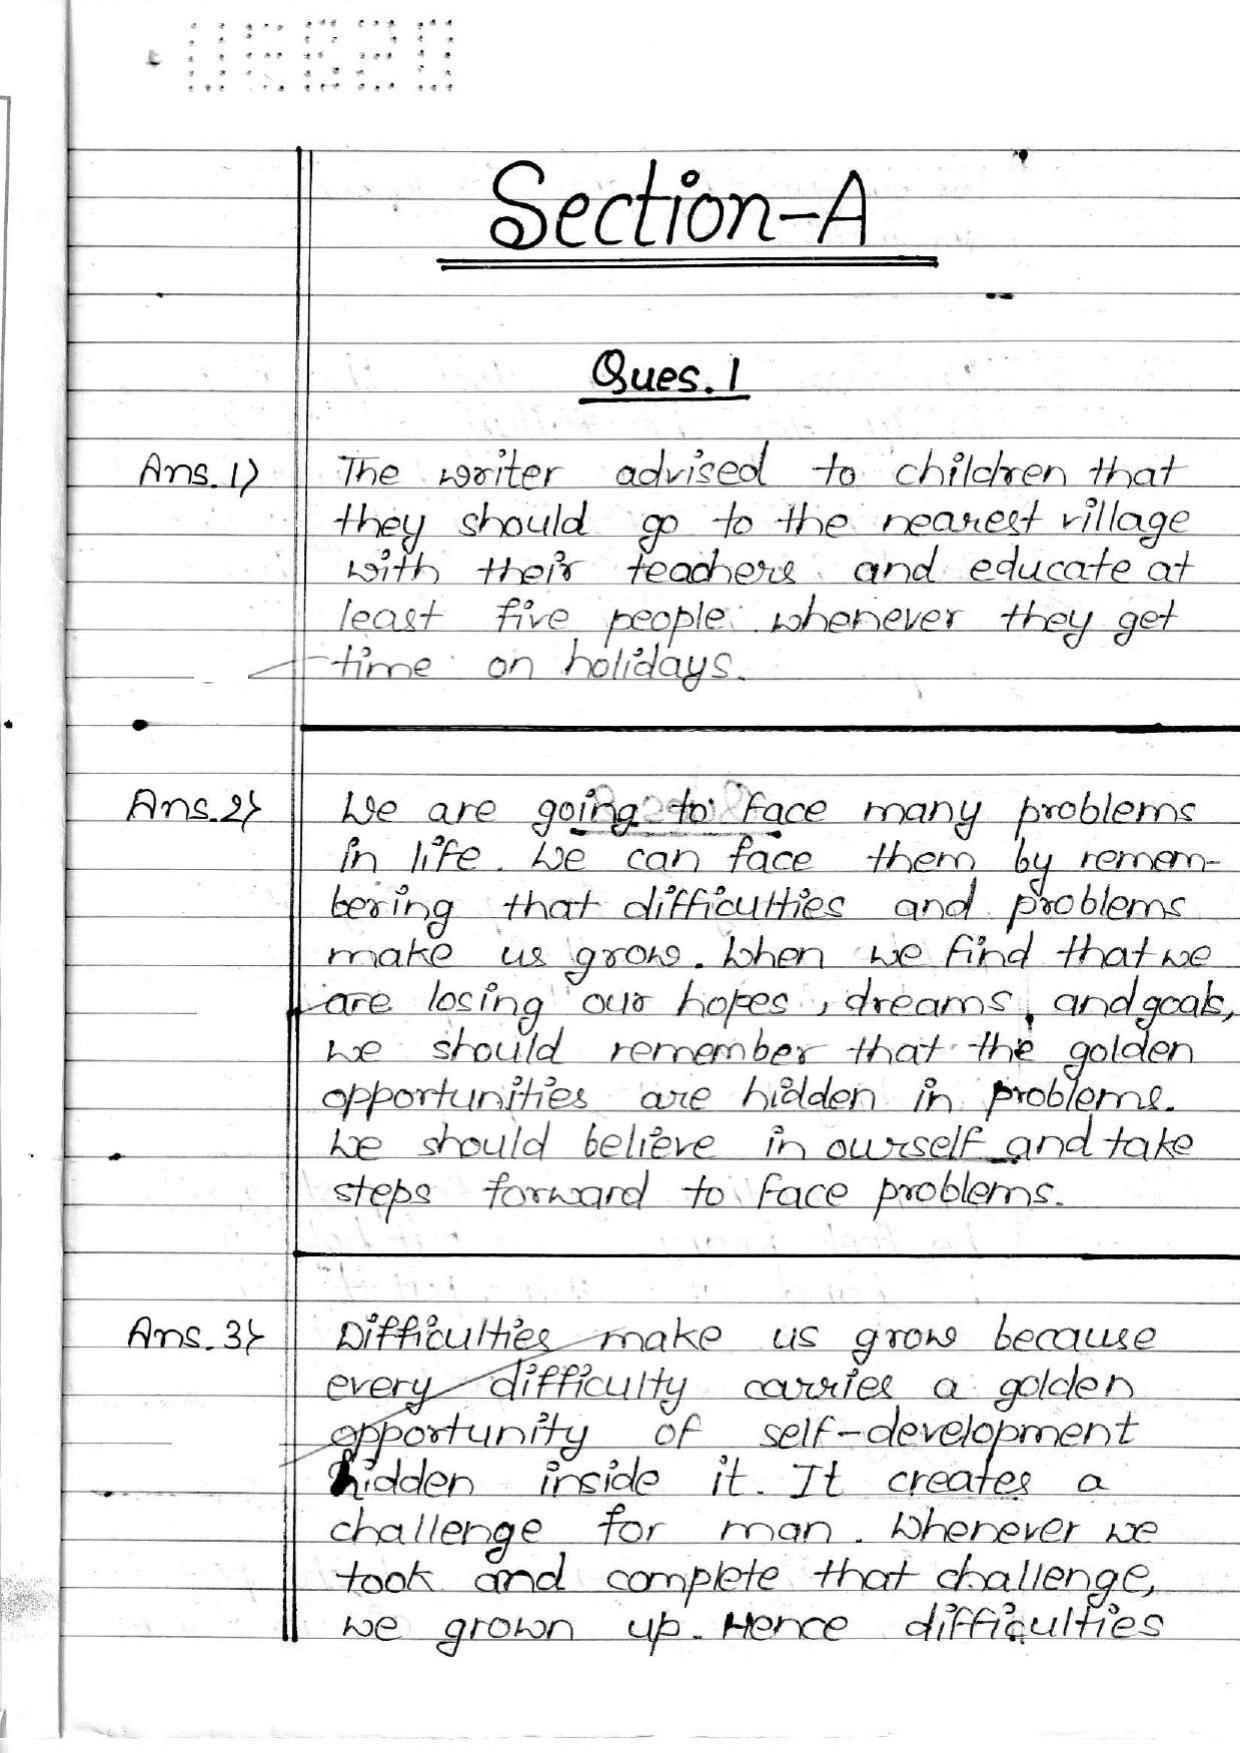 Section-A
Ques. 1
Ans. 1) The writer advised to children that
they should go to the nearest village
with their teachers and educate at
least five people whenever they get
time on holidays.
Ans. 2) We are going to face many problems
in life. We can face them by remem-
bering that difficulties and problems
make us grow. When we find that we
are losing our hopes, dreams, and goals,
we should remember that the golden
opportunities are hidden in problems.
We should believe in ourself and take
steps forward to face problems.
Ans. 3) Difficulties make us grow because
every difficulty carries a golden
opportunity of self-development
hidden inside it. It creates a
challenge for man. Whenever we
took and complete that challenge,
we grown up. Hence difficulties